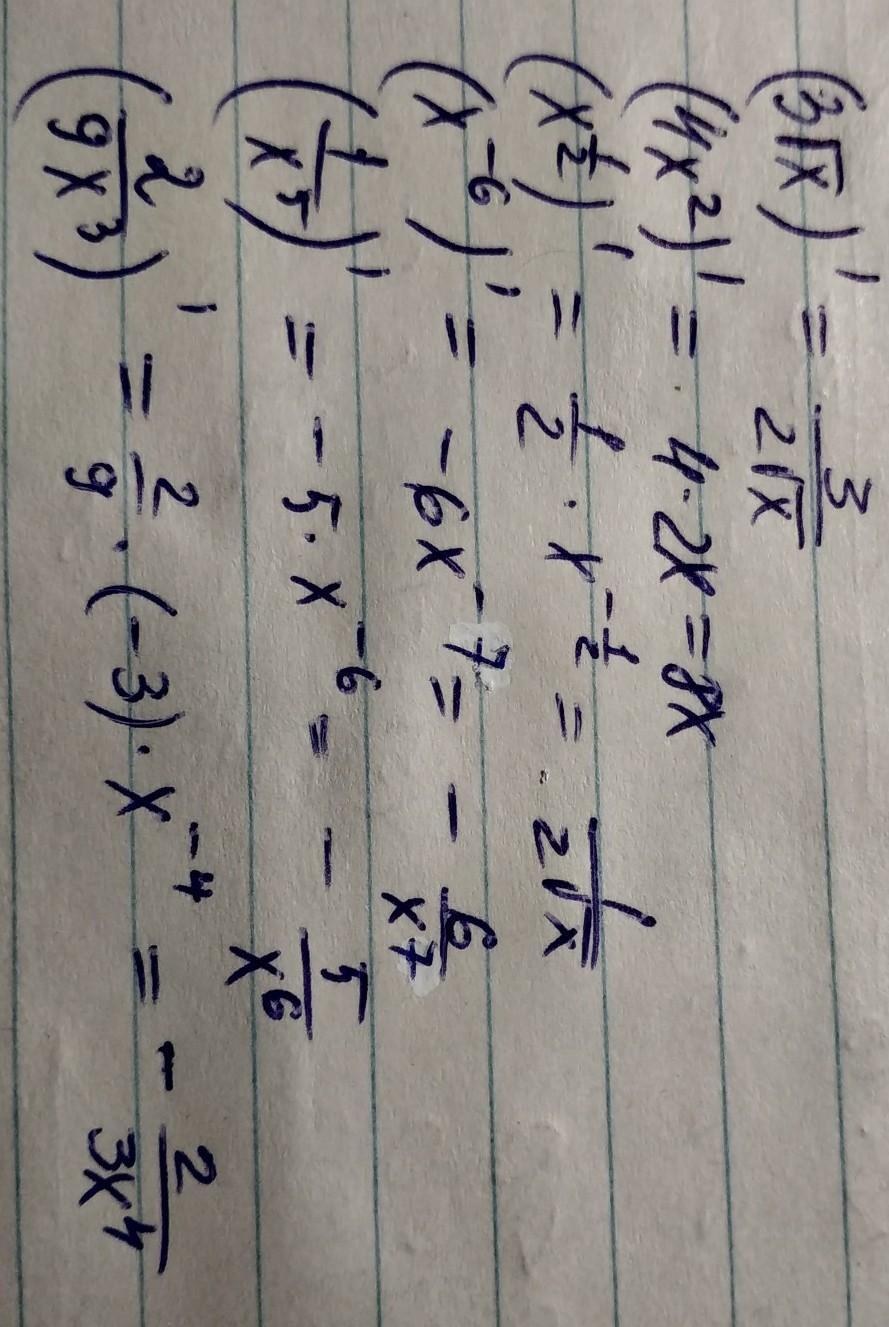 (3√x)' = 3/(2√x)
(4x²)' = 4·2x = 8x
(x^(1/2))' = 1/2 · x^(-1/2) = 1/(2√x)
(x⁻⁶)' = -6x⁻⁷ = - 6/x⁷
(1/x⁵)' = -5·x⁻⁶ = - 5/x⁶
(2/(9x³))' = 2/9 · (-3)·x⁻⁴ = - 2/(3x⁴)